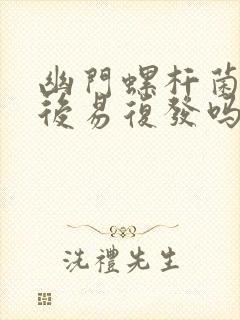 幽門螺杆菌
後易復發嗎
洗禮先生